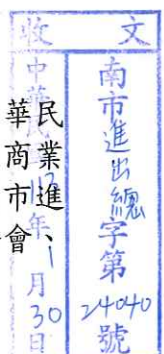 收文
南市進出總字第24040號
中華民國年1月30日
民業進、
華商市會